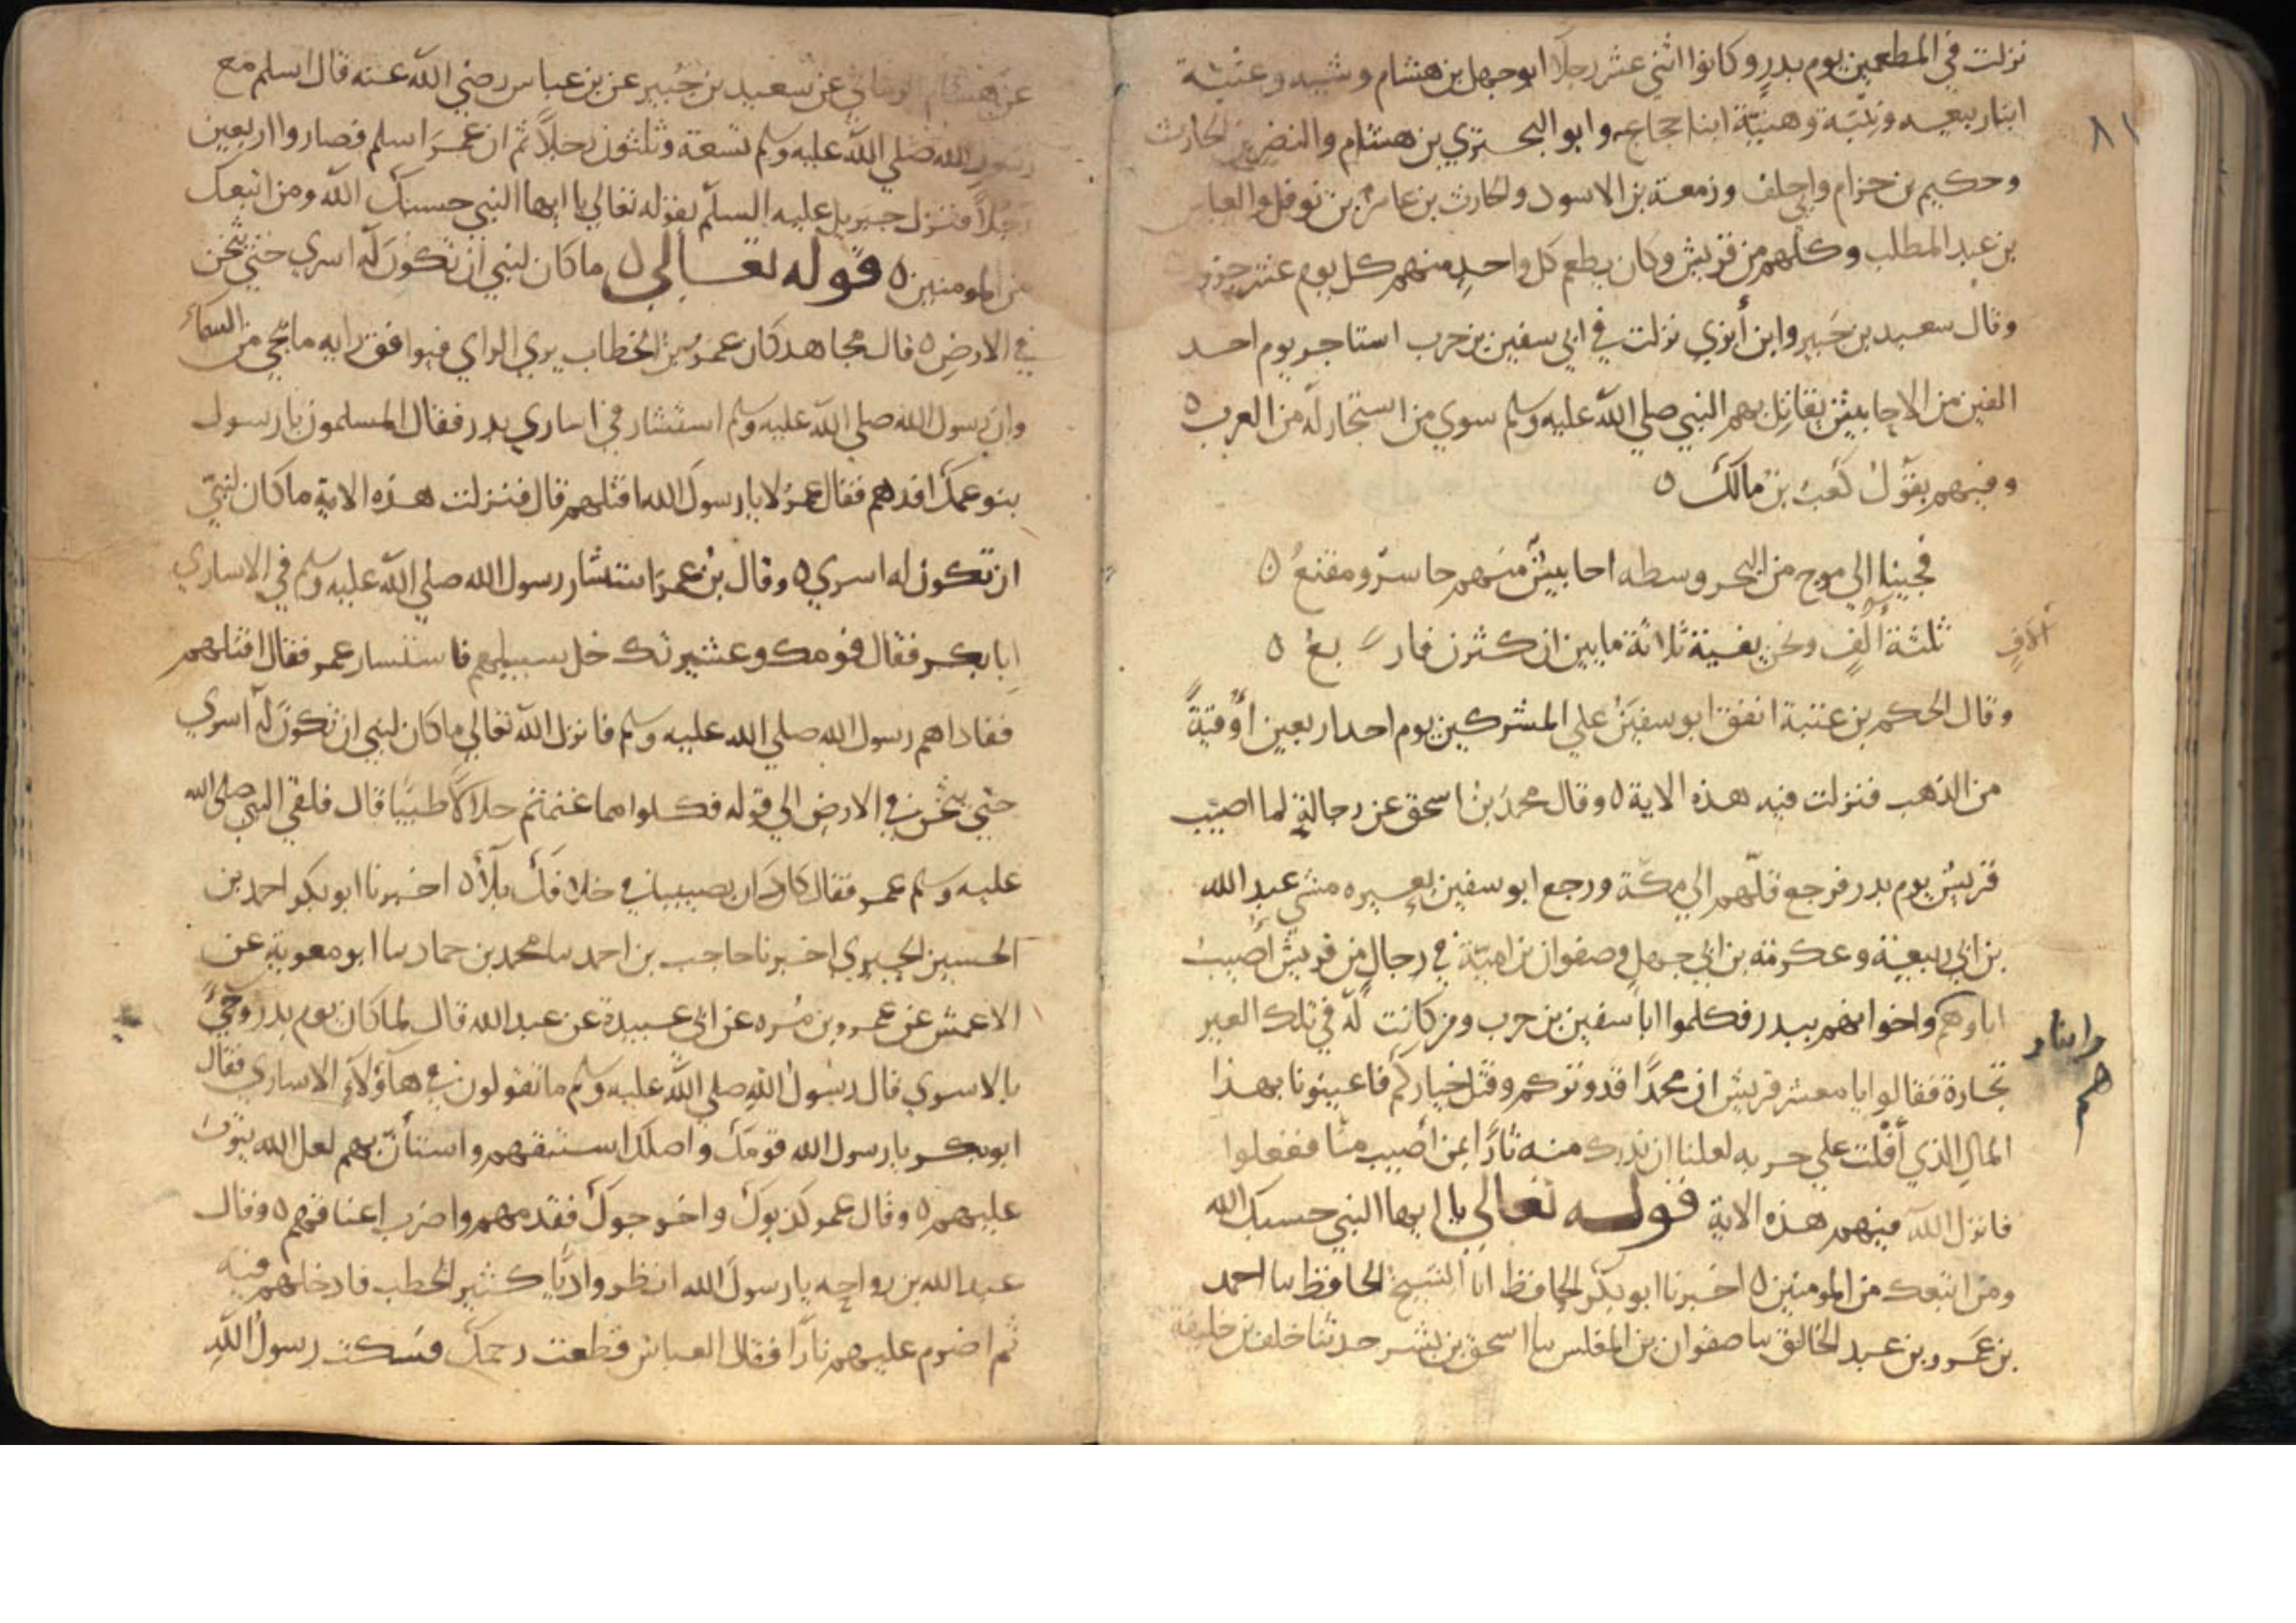 ٨١
نزلت في المطعمين يوم بدر وكانوا اثني عشر رجلا ابو جهل بن هشام وشيبه وعتبة
ابنا ربيعه ونبيه ومنبه ابنا حجاج وابو البحتري بن هشام والنضر بن الحارث
وحكيم بن حزام وابي خلف وزمعة بن الاسود والحارث بن عامر بن نوفل والعباس
بن عبد المطلب وكلهم من قريش وكان يطعم كل واحد منهم كل يوم عشر جزور
وقال سعيد بن جبير وابن أبزي نزلت في ابي سفين بن حرب استاجر يوم احد
الفين من الاحابيش يقاتل بهم النبي صلي الله عليه وسلم سوي من استجار له من العرب ٥
وفيهم يقول كعب بن مالك ٥
فجينا الي موج من البحر وسطه احابيش منهم حاسر ومقنع ٥
ثلثة ألف ونحن بقية ثلاثة مايين ان كثرن فار بع ٥
ألاف
وقال الحكم بن عتبة انفق ابو سفين علي المشركين يوم احد اربعين أوقية
من الذهب فنزلت فيه هذه الاية ٥ وقال محمد بن اسحق عن رجاله لما اصيب
قريش يوم بدر فرجع فلهم الي مكة ورجع ابو سفين بعيره مشي عبد الله
بن ابي ربيعة وعكرمة بن ابي جهل وصفوان بن امية في رجال من قريش أصيب
اباوهم واخوانهم ببدر فكلموا ابا سفين بن حرب ومن كانت له في تلك العير
وابناوهم
تجارة فقالوا يا معشر قريش ان محمدا قد وتركم وقتل خياركم فاعينونا بهذا
المال الذي أفلت علي حربه لعلنا ان ندرك منه ثارا بمن أصيب منا ففعلوا
فانزل الله فيهم هذه الاية قوله تعالي يا ايها النبي حسبك الله
ومن اتبعك من المومنين ٥ اخبرنا ابو بكر الحافظ انا الشيخ الحافظ سا احمد
بن عمرو بن عبد الخالق سا صفوان بن المغلس سا اسحق بن بشر حدثنا خلف بن خليفة
عن هشام الرماني عن سعيد بن جبير عن بن عباس رضي الله عنه قال اسلم مع
رسول الله صلي الله عليه وسلم تسعة وثلثون رجلا ثم ان عمر اسلم فصاروا اربعين
رجلا فنزل جبريل عليه السلم بقوله تعالي يا ايها النبي حسبك الله ومن اتبعك
من المومنين ٥ قوله تعالي ٥ ما كان لنبي ان تكون له اسري حتي يثخن
في الارض ٥ قال مجاهد كان عمر بن الخطاب يري الراي فيوافق رايه ما يجي من السماء
وان رسول الله صلي الله عليه وسلم استشار في اساري بدر فقال المسلمون يا رسول
بنو عمك افدهم فقال عمر لا يا رسول الله اقتلهم قال فنزلت هذه الاية ما كان لنبي
ان تكون له اسري ٥ وقال بن عمر استشار رسول الله صلي الله عليه وسلم في الاساري
ابا بكر فقال قومك وعشيرتك خل سبيلهم فاستسار عمر فقال اقتلهم
ففاداهم رسول الله صلي الله عليه وسلم فانزل الله تعالي ما كان لنبي ان تكون له اسري
حتي يثخن في الارض الي قوله فكلوا مما غنمتم حلالا طيبا قال فلقي النبي صلى الله
عليه وسلم عمر فقال كاد ان يصيبنا في خلافك بلاء ٥ اخبرنا ابو بكر احمد بن
الحسين الحيري اخبرنا حاجب بن احمد سا محمد بن حماد سا ابو معوية عن
الاعمش عن عمرو بن مره عن ابي عبيدة عن عبد الله قال لما كان يوم بدر وجيء
بالاسري قال رسول الله صلي الله عليه وسلم ما تقولون في هاؤلاء الاساري فقال
ابو بكر يا رسول الله قومك واصلك استبقهم واستأن بهم لعل الله يتوب
عليهم ٥ وقال عمر كذبوك واخرجوك فقدمهم واضرب اعناقهم ٥ وقال
عبد الله بن رواحه يا رسول الله انظر واديا كثير الحطب فادخلهم فيه
ثم اضرم عليهم نارا فقال العباس قطعت رحمك فسكت رسول الله